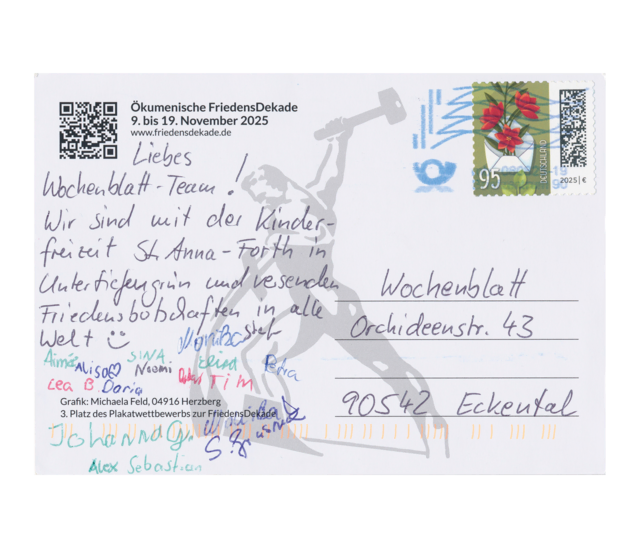 Ökumenische FriedensDekade
9. bis 19. November 2025
www.friedensdekade.de
Liebes
Wochenblatt-Team!
Wir sind mit der Kinder-
freizeit St. Anna-Forth in
Untertiefengrün und versenden
Friedensbotschaften in alle
Welt
Aimée Alisa SINA Noemi Elisa Petra
Lea B. Doris Tim
Grafik: Michaela Feld, 04916 Herzberg
3. Platz des Plakatwettbewerbs zur FriedensDekade
Johanna G.
Alex Sebastian
95
DEUTSCHLAND
2025 | €
Wochenblatt
Orchideenstr. 43
90542 Eckental